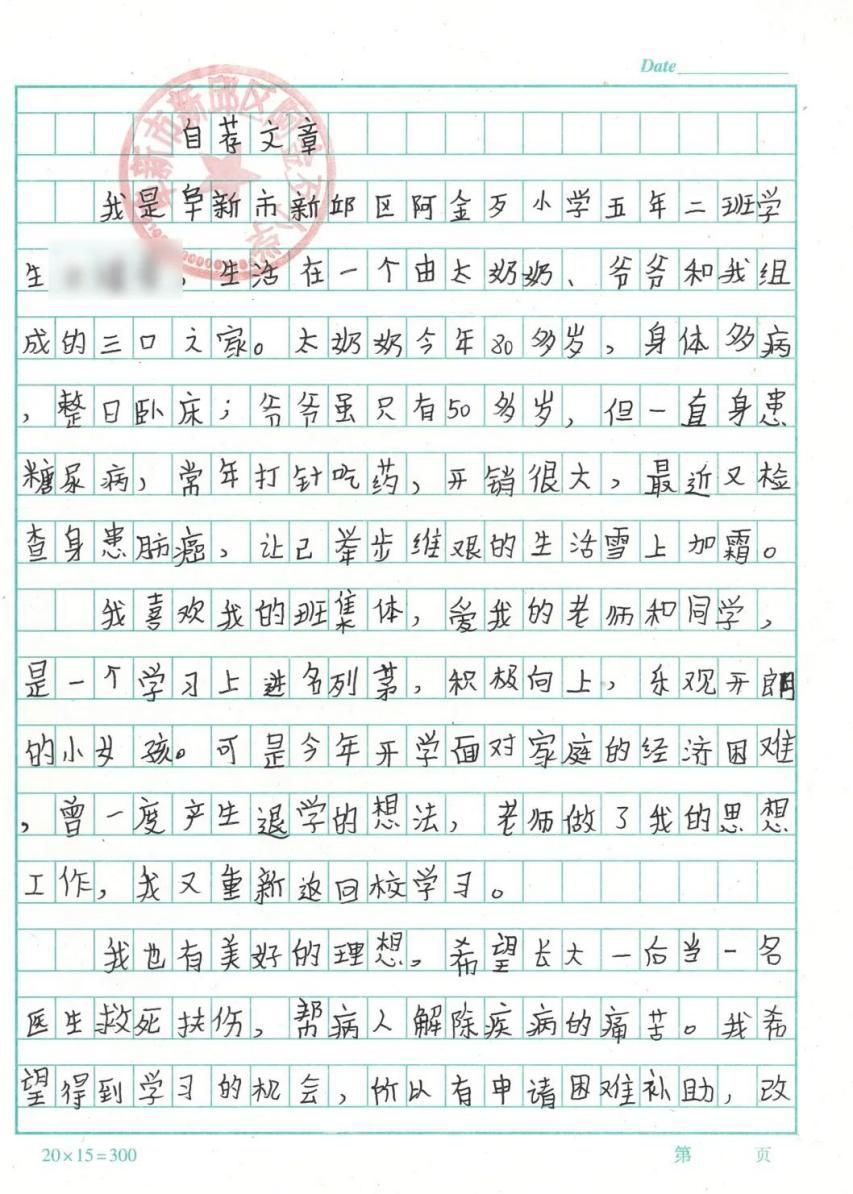 Date
自荐文章
我是阜新市新邱区阿金歹小学五年二班学
生，生活在一个由太奶奶、爷爷和我组
成的三口之家。太奶奶今年80多岁，身体多病
，整日卧床；爷爷虽只有50多岁，但一直身患
糖尿病，常年打针吃药，开销很大，最近又检
查身患肺癌，让已举步维艰的生活雪上加霜。
我喜欢我的班集体，爱我的老师和同学，
是一个学习上进名列第，积极向上，乐观开朗
的小女孩。可是今年开学面对家庭的经济困难
，曾一度产生退学的想法，老师做了我的思想
工作，我又重新返回校学习。
我也有美好的理想。希望长大一后当一名
医生救死扶伤，帮病人解除疾病的痛苦。我希
望得到学习的机会，所以有申请困难补助，改
20×15=300
第 页